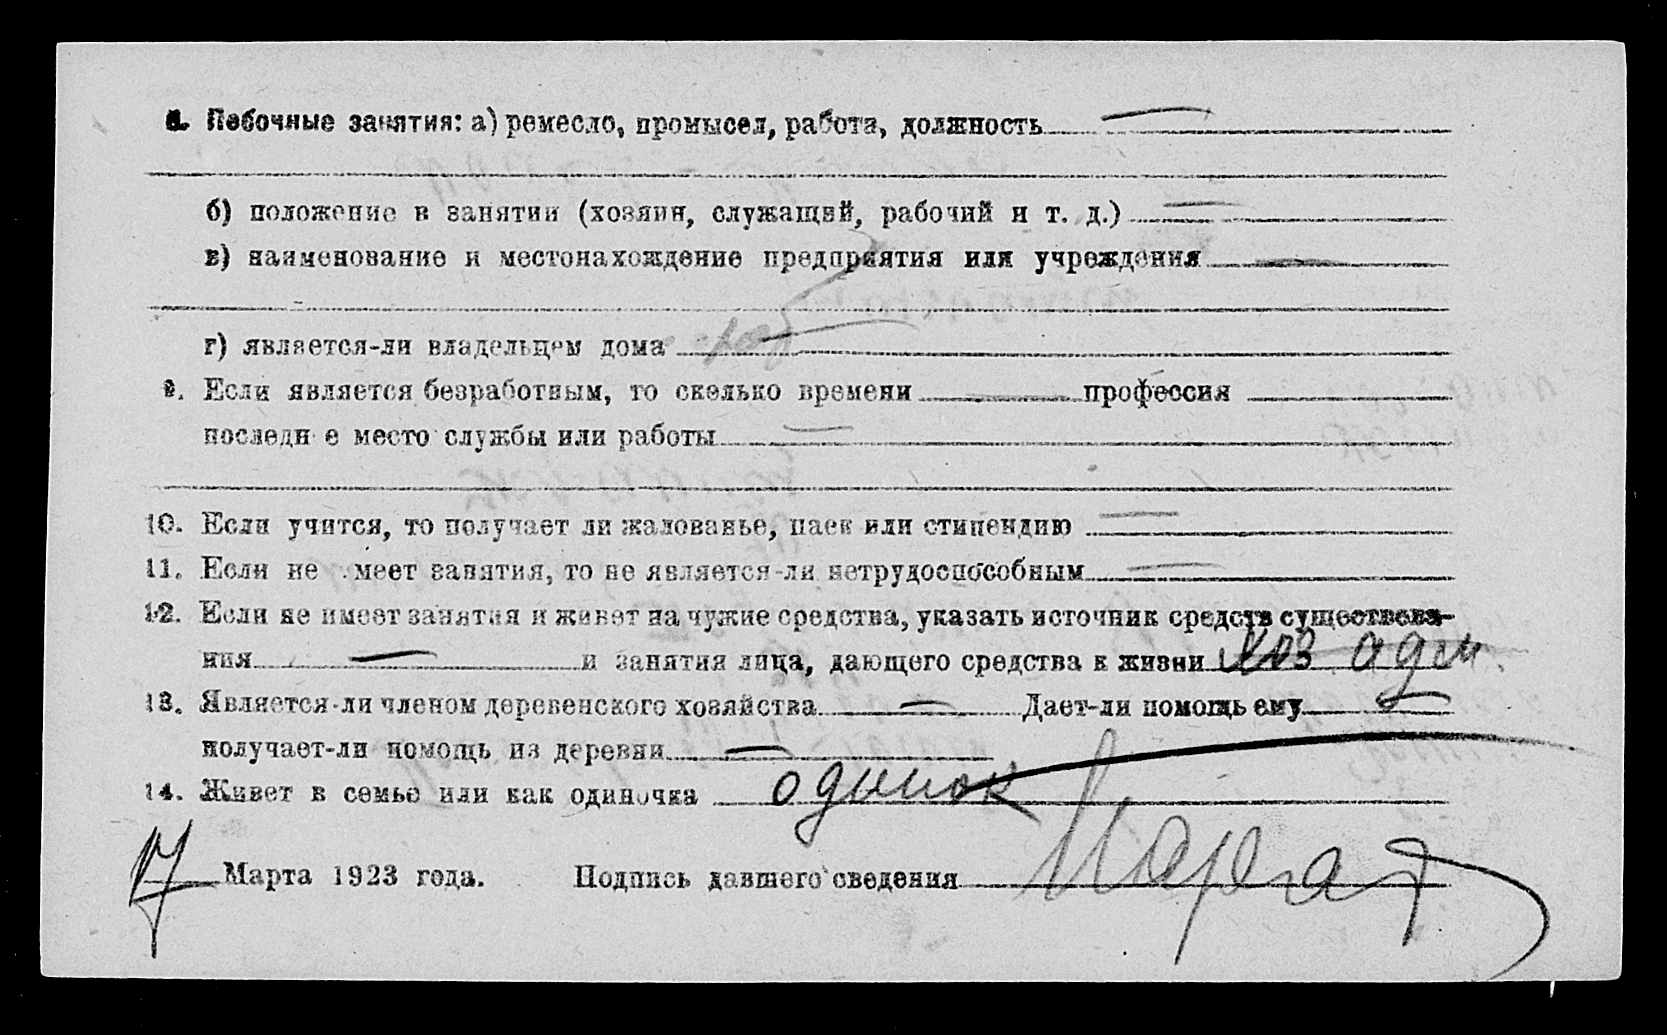 8. Побочные занятия: а) ремесло, промысел, работа, должность —
б) положение в занятии (хозяин, служащий, рабочий и т. д.) —
в) наименование и местонахождение предприятия или учреждения —
г) является-ли владельцем дома
9. Если является безработным, то сколько времени — профессия
последн е место службы или работы —
10. Если учится, то получает ли жалованье, паек или стипендию —
11. Если не .меет занятия, то не является-ли нетрудоспособным —
12. Если не имеет занятия и живет на чужие средства, указать источник средств существова-
ния — и занятия лица, дающего средства к жизни хоз адм.
13. Является-ли членом деревенского хозяйства — Дает-ли помощь ему —
получает-ли помощь из деревни —
14. Живет в семье или как одиночка одинок
17 Марта 1923 года. Подпись давшего сведения